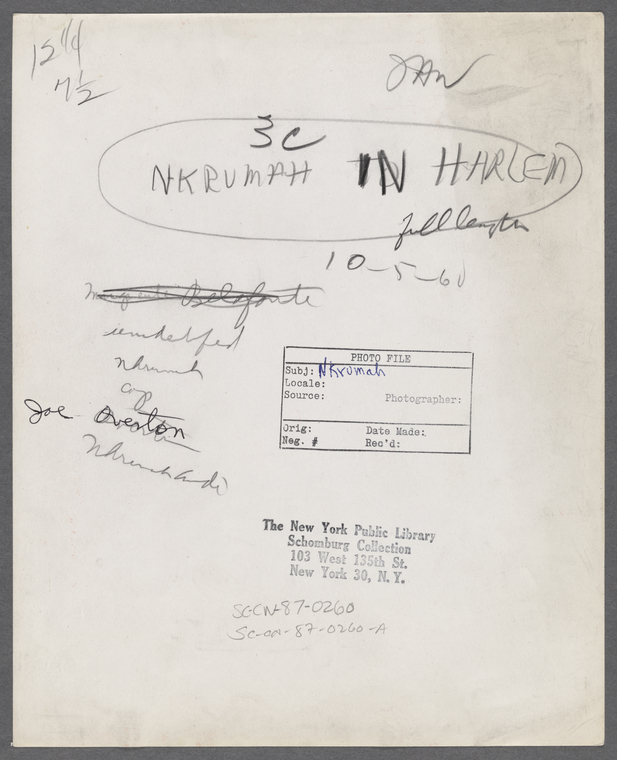 12 1/4
7 1/2
JAW
3C
NKRUMAH IN HARLEM
full length
10-5-60
Belafonte
Nkrumah
cop
Joe Overton
PHOTO FILE
Subj: Nkrumah
Locale:
Source: Photographer:
Orig: Date Made:
Neg. # Rec'd:
The New York Public Library
Schomburg Collection
103 West 135th St.
New York 30, N. Y.
SC-CN-87-0260
SC-CN-87-0260-A